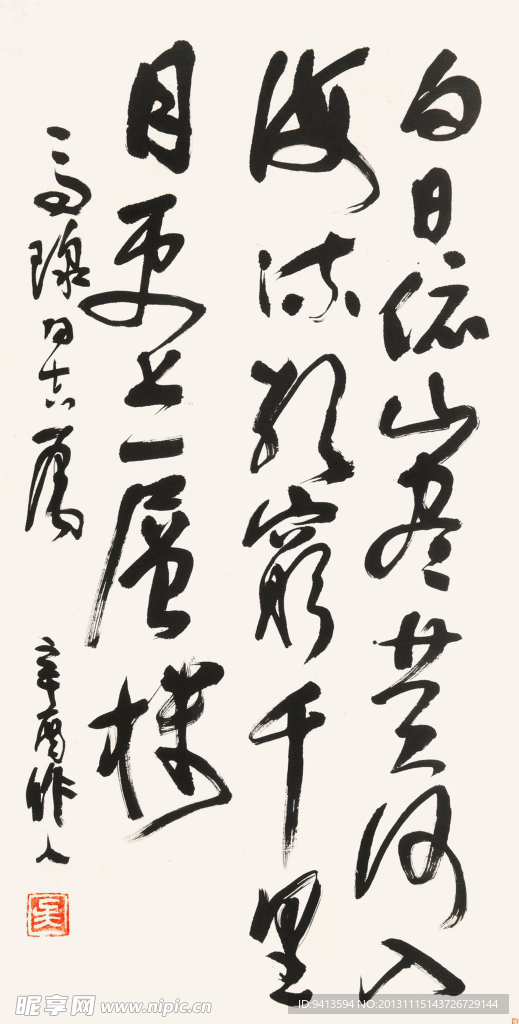 白日依山盡黄河入
海流欲窮千里
目更上一層樓
高 同志属 辛酉作人
吴
昵享网 www.nipic.cn
ID:9413594 NO:20131115143726729144